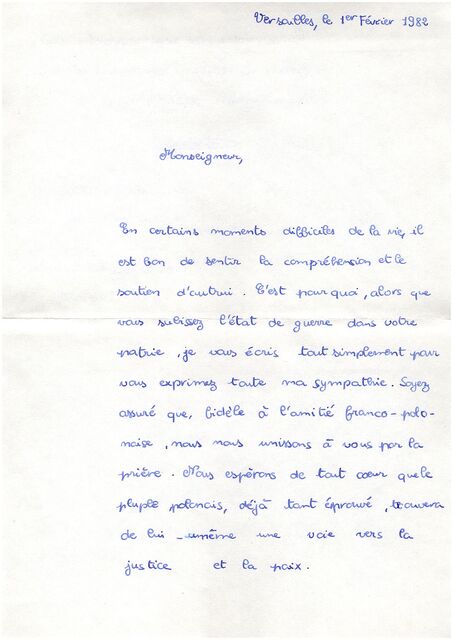 Versailles, le 1er Février 1982
Monseigneur,
En certains moments difficiles de la vie, il
est bon de sentir la compréhension et le
soutien d'autrui. C'est pourquoi, alors que
vous subissez l'état de guerre dans votre
patrie, je vous écris tout simplement pour
vous exprimez toute ma sympathie. Soyez
assuré que, fidèle à l'amitié franco-polo-
naise, nous nous unissons à vous par la
prière. Nous espérons de tout cœur que le
peuple polonais, déjà tant éprouvé, trouvera
de lui-même une voie vers la
justice et la paix.